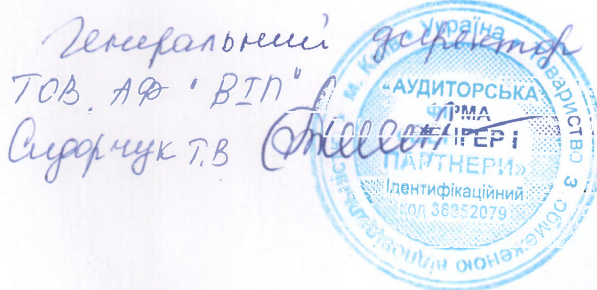 Генеральний директор
ТОВ АФ "ВІП"
Сидорчук Т.В
Україна м. Київ Товариство з обмеженою відповідальністю
«АУДИТОРСЬКА
ФІРМА
І
ПАРТНЕРИ»
Ідентифікаційний
код 38352079